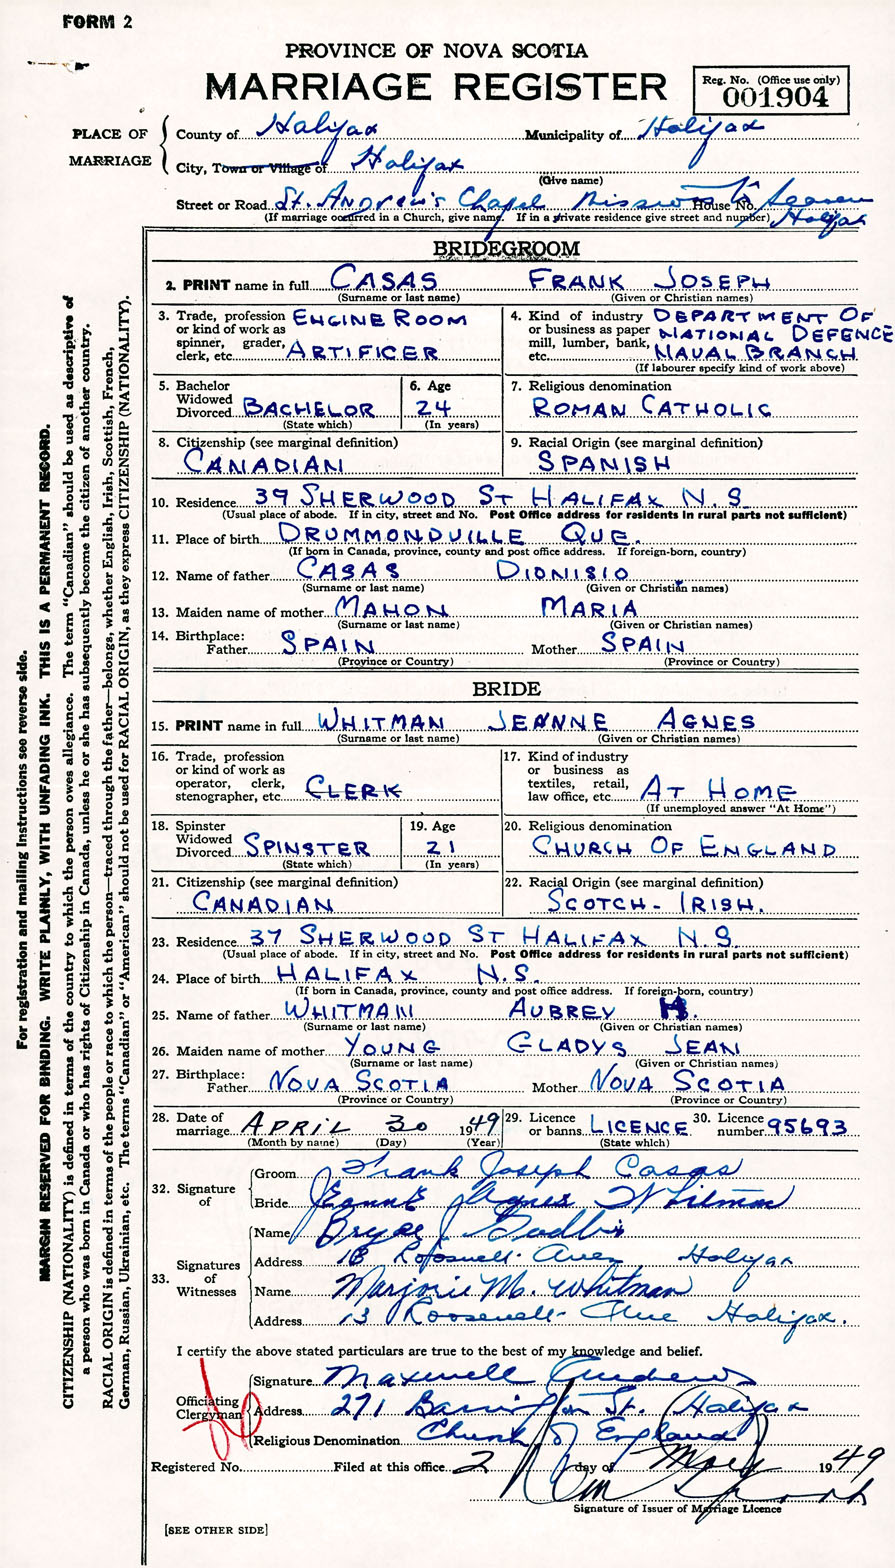 FORM 2
PROVINCE OF NOVA SCOTIA
MARRIAGE REGISTER
Reg. No. (Office use only)
001904
PLACE OF MARRIAGE
County of Halifax Municipality of Halifax
City, Town or Village of Halifax
(Give name)
Street or Road St. Andrew's Chapel Missions to Seamen House No. Halifax
(If marriage occurred in a Church, give name. If in a private residence give street and number)
BRIDEGROOM
2. PRINT name in full CASAS FRANK JOSEPH
(Surname or last name) (Given or Christian names)
3. Trade, profession or kind of work as spinner, grader, clerk, etc. ENGINE ROOM ARTIFICER
4. Kind of industry or business as paper mill, lumber, bank, etc. DEPARTMENT OF NATIONAL DEFENCE NAVAL BRANCH
(If labourer specify kind of work above)
5. Bachelor Widowed Divorced BACHELOR
(State which)
6. Age 24
(In years)
7. Religious denomination
ROMAN CATHOLIC
8. Citizenship (see marginal definition)
CANADIAN
9. Racial Origin (see marginal definition)
SPANISH
10. Residence 39 SHERWOOD ST HALIFAX N.S.
(Usual place of abode. If in city, street and No. Post Office address for residents in rural parts not sufficient)
11. Place of birth DRUMMONDVILLE QUE.
(If born in Canada, province, county and post office address. If foreign-born, country)
12. Name of father CASAS DIONISIO
(Surname or last name) (Given or Christian names)
13. Maiden name of mother MAHON MARIA
(Surname or last name) (Given or Christian names)
14. Birthplace:
Father SPAIN Mother SPAIN
(Province or Country) (Province or Country)
BRIDE
15. PRINT name in full WHITMAN JEANNE AGNES
(Surname or last name) (Given or Christian names)
16. Trade, profession or kind of work as operator, clerk, stenographer, etc. CLERK
17. Kind of industry or business as textiles, retail, law office, etc. AT HOME
(If unemployed answer "At Home")
18. Spinster Widowed Divorced SPINSTER
(State which)
19. Age 21
(In years)
20. Religious denomination
CHURCH OF ENGLAND
21. Citizenship (see marginal definition)
CANADIAN
22. Racial Origin (see marginal definition)
SCOTCH-IRISH.
23. Residence 37 SHERWOOD ST HALIFAX N.S.
(Usual place of abode. If in city, street and No. Post Office address for residents in rural parts not sufficient)
24. Place of birth HALIFAX N.S.
(If born in Canada, province, county and post office address. If foreign-born, country)
25. Name of father WHITMAN AUBREY H.
(Surname or last name) (Given or Christian names)
26. Maiden name of mother YOUNG GLADYS JEAN
(Surname or last name) (Given or Christian names)
27. Birthplace:
Father NOVA SCOTIA Mother NOVA SCOTIA
(Province or Country) (Province or Country)
28. Date of marriage APRIL 30 1949
(Month by name) (Day) (Year)
29. Licence or banns LICENCE
(State which)
30. Licence number 95693
32. Signature of
Groom Frank Joseph Casas
Bride Jeanne Agnes Whitman
33. Signatures of Witnesses
Name Bryce J.
Address 13 Roosevelt Ave Halifax
Name Marjorie M. Whitman
Address 13 Roosevelt Ave Halifax.
I certify the above stated particulars are true to the best of my knowledge and belief.
Officiating Clergyman
Signature Maxwell Andrews
Address 271 Barrington St. Halifax
Religious Denomination Church of England
Registered No. Filed at this office 2 day of May 1949
Signature of Issuer of Marriage Licence
[SEE OTHER SIDE]
For registration and mailing instructions see reverse side.
MARGIN RESERVED FOR BINDING. WRITE PLAINLY, WITH UNFADING INK. THIS IS A PERMANENT RECORD.
CITIZENSHIP (NATIONALITY) is defined in terms of the country to which the person owes allegiance. The term "Canadian" should be used as descriptive of
a person who was born in Canada or who has rights of Citizenship in Canada, unless he or she has subsequently become the citizen of another country.
RACIAL ORIGIN is defined in terms of the people or race to which the person—traced through the father—belongs, whether English, Irish, Scottish, French,
German, Russian, Ukrainian, etc. The terms "Canadian" or "American" should not be used for RACIAL ORIGIN, as they express CITIZENSHIP (NATIONALITY).